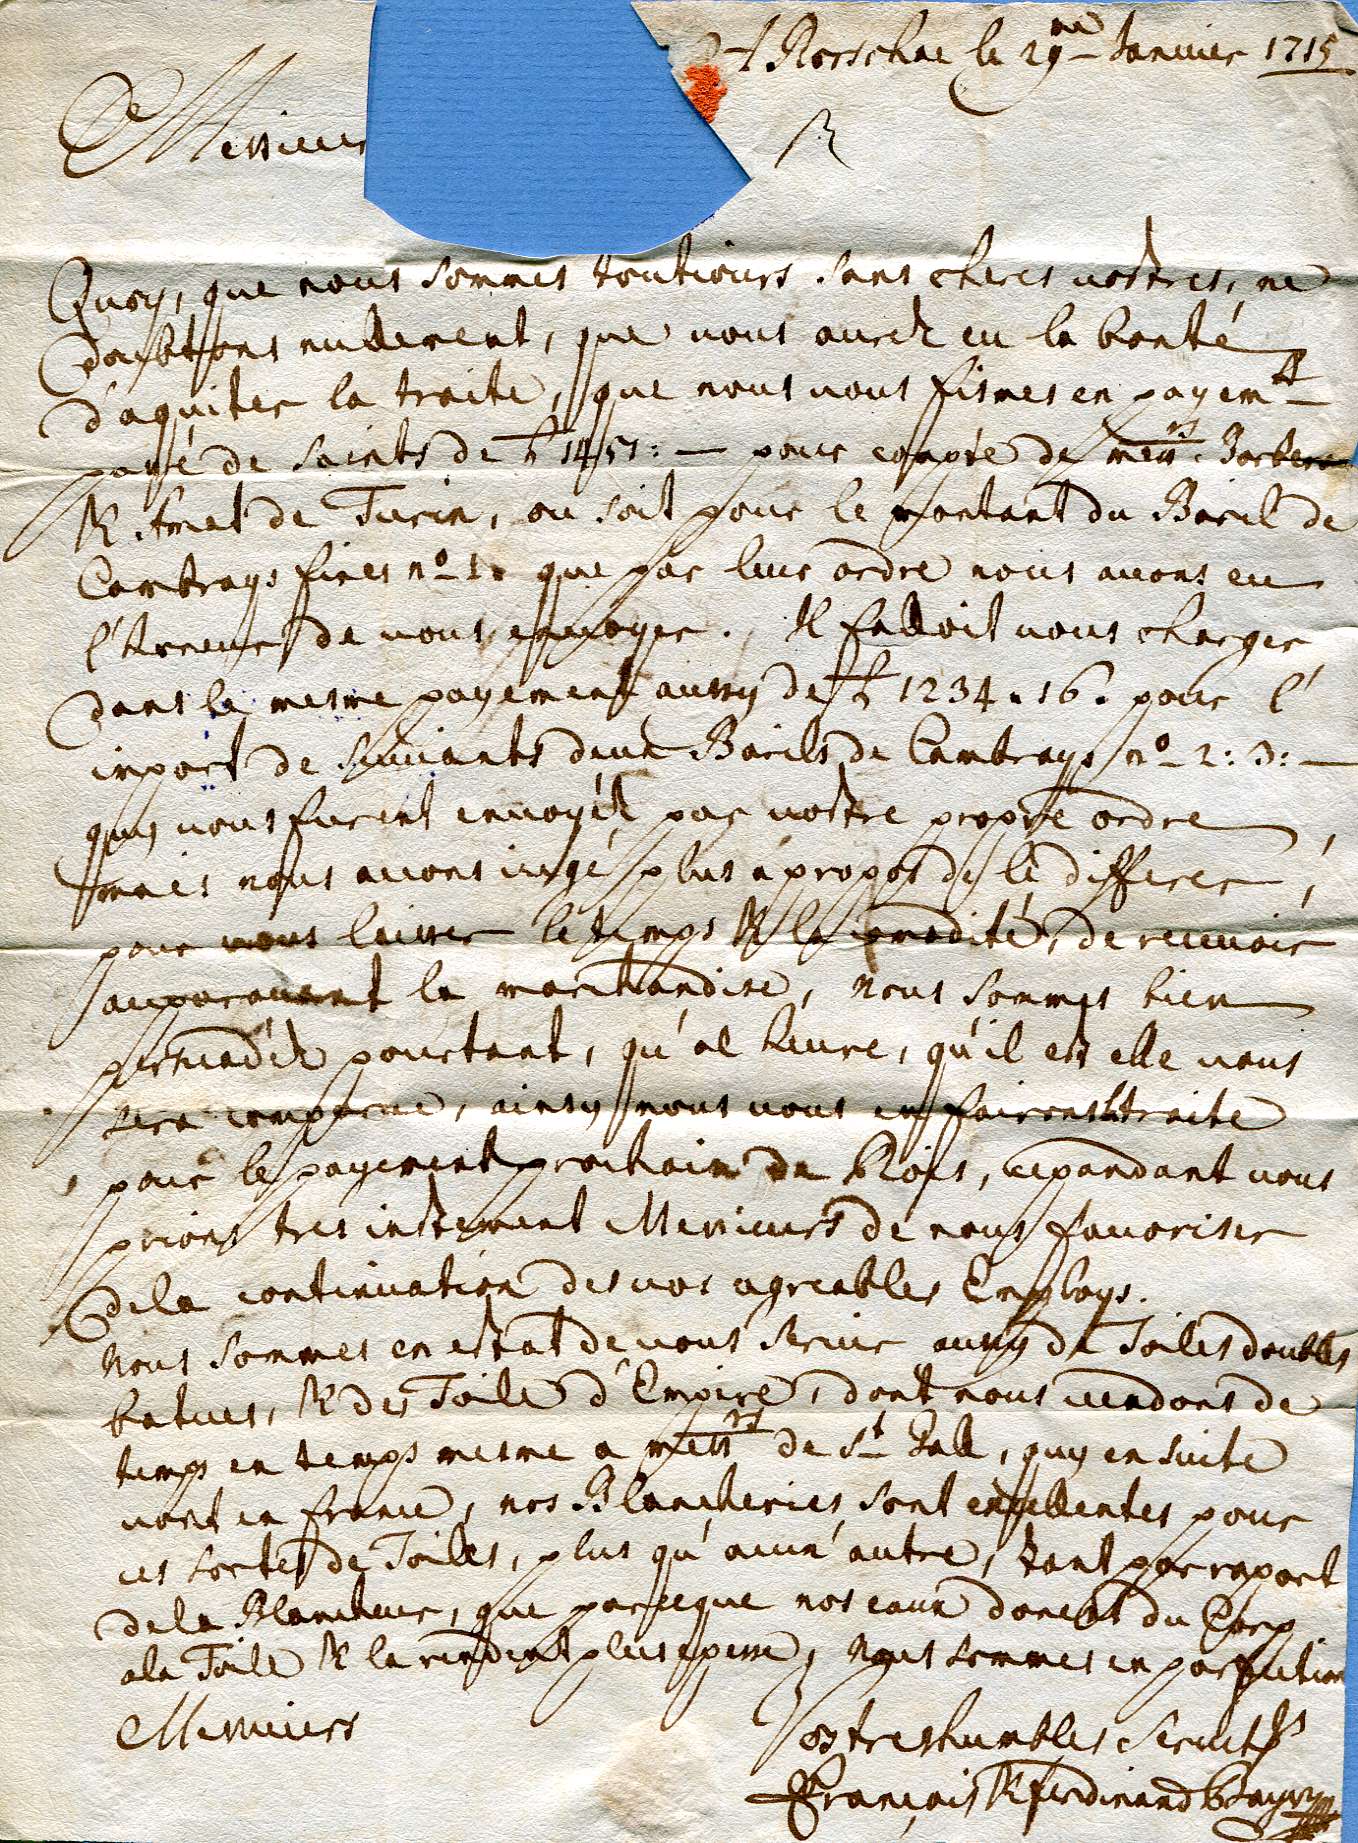 A Rorschac le 29me Janvier 1715
Messieurs
R
Quoy, que nous sommes toutiours sans cheres vostres, ne
doubtons nullement, que vous aurez eu la bonté
d'aquiter la traite, que nous vous fismes en payemtt
payé de Saints de 1451:— pour compte de Messrs
& Amet de Turin, ou soit pour le montant du Baril de
Cambrays fines no 1. que par leur ordre nous avons eu
l'honneur de vous envoyer. Il falloit vous charger
dans le mesme payement aussy de 1234.16. pour l'
import de suivants deux Barils de Cambrays no 2: 3:—
quy vous furent envoyéz par vostre propre ordre,
mais nous avons iugé plus apropos de le differer,
pour vous laisser le temps & la comodité, de recevoir
auparavant la marchandise, nous sommes bien
persuadéz pourtant, qu'al heure, qu'il est elle vous
sera comparue, ainsy nous vous en fairons traite
pour le payement prochain de Rois, cepandant vous
prions tres instement Messieurs de nous favoriser
dela continuation des vos agreables Employs.
Nous sommes en estat de vous servir aussy de Toiles doubles
batues, & des Toile d'Empire, dont nous vendons de
temps en temps mesme a Messrs de St Gall, quy ensuite
vont en france, nos Blancheries sont exellentes pour
ces sortes de Toiles, plus qu'aucun' autre, tant par raport
dela Blancheur, que parceque nos eaux donent du Corp
ala Toile & la rendent plus epesse, Nous sommes en parfection
Messieurs
Vos treshumbles Servitrs
François & ferdinand Bayer